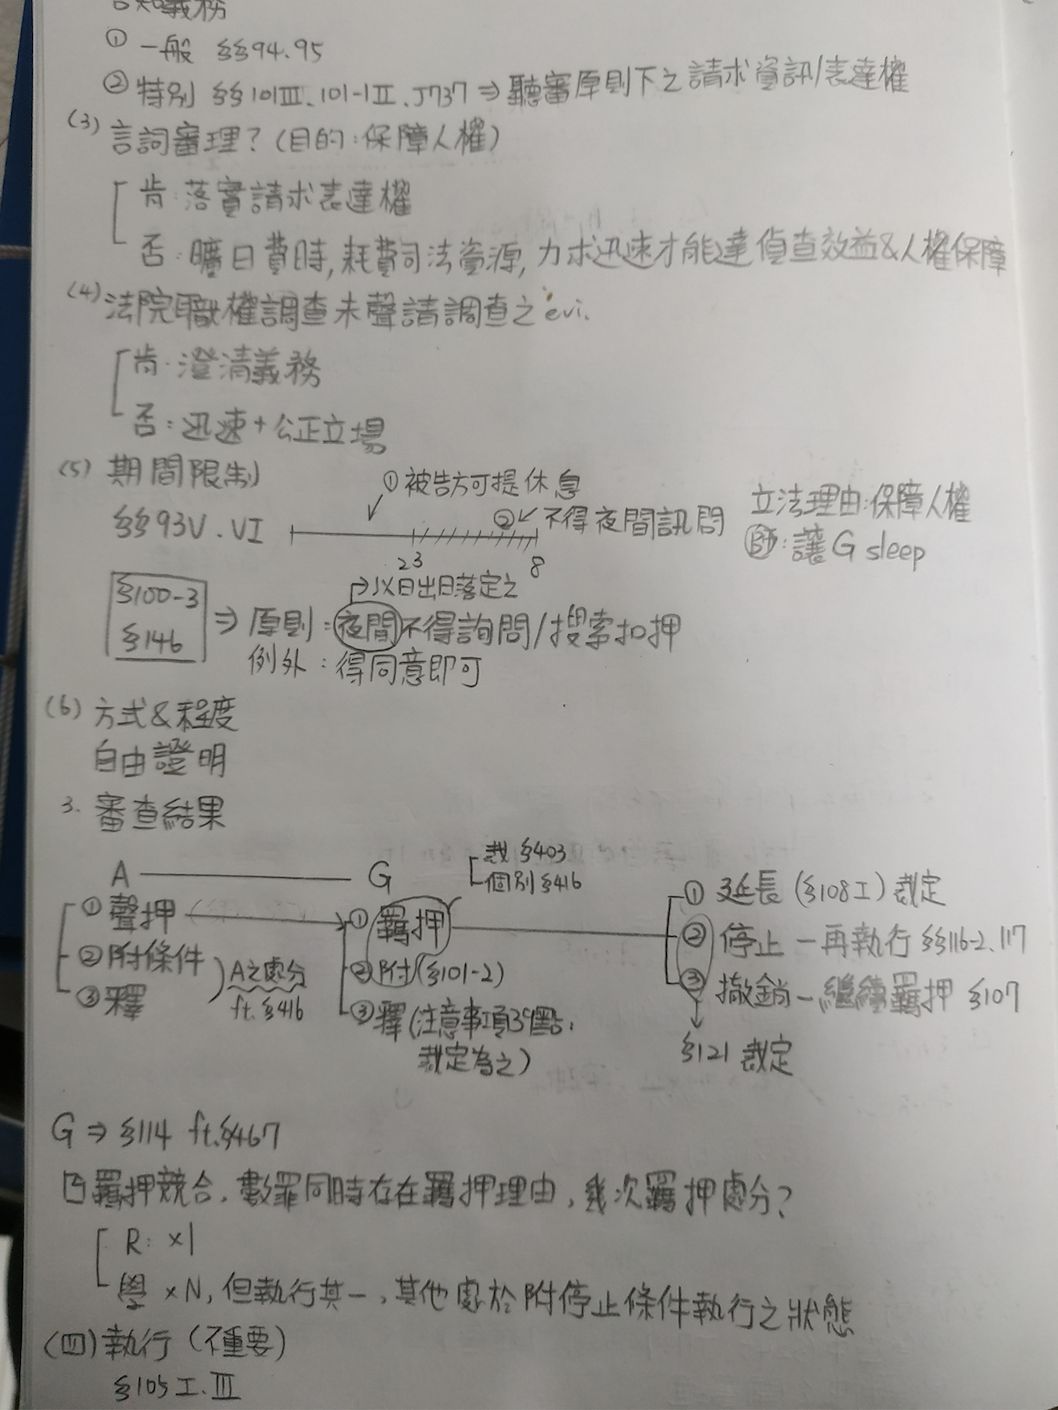 告知義務
① 一般 §§94.95
② 特別 §§101Ⅲ、101-1Ⅱ、J737⇒聽審原則下之請求資訊/表達權
(3) 言詞審理?(目的:保障人權)
肯:落實請求表達權
否:曠日費時,耗費司法資源,力求迅速才能達偵查效益&人權保障
(4) 法院職權調查未聲請調查之evi.
肯:澄清義務
否:迅速+公正立場
(5) 期間限制
①被告方可提休息
§§93Ⅴ.Ⅵ
②不得夜間訊問
23
8
立法理由:保障人權
:讓G sleep
→以日出日落定之
§100-3
§146
⇒ 原則:夜間不得詢問/搜索扣押
例外:得同意即可
(6) 方式&程度
自由證明
3. 審查結果
A
G
裁§403
個別§416
①聲押
②附條件
③釋
A之處分
ft.§416
①羈押
②附(§101-2)
③釋(注意事項39點,
裁定為之)
① 延長(§108Ⅰ)裁定
② 停止—再執行§§116-2、117
③ 撤銷—繼續羈押 §107
§121 裁定
G⇒§114 ft.§467
羈押競合,數罪同時存在羈押理由,幾次羈押處分?
R:×1
學×N,但執行其一,其他處於附停止條件執行之狀態
(四)執行(不重要)
§105Ⅰ.Ⅲ